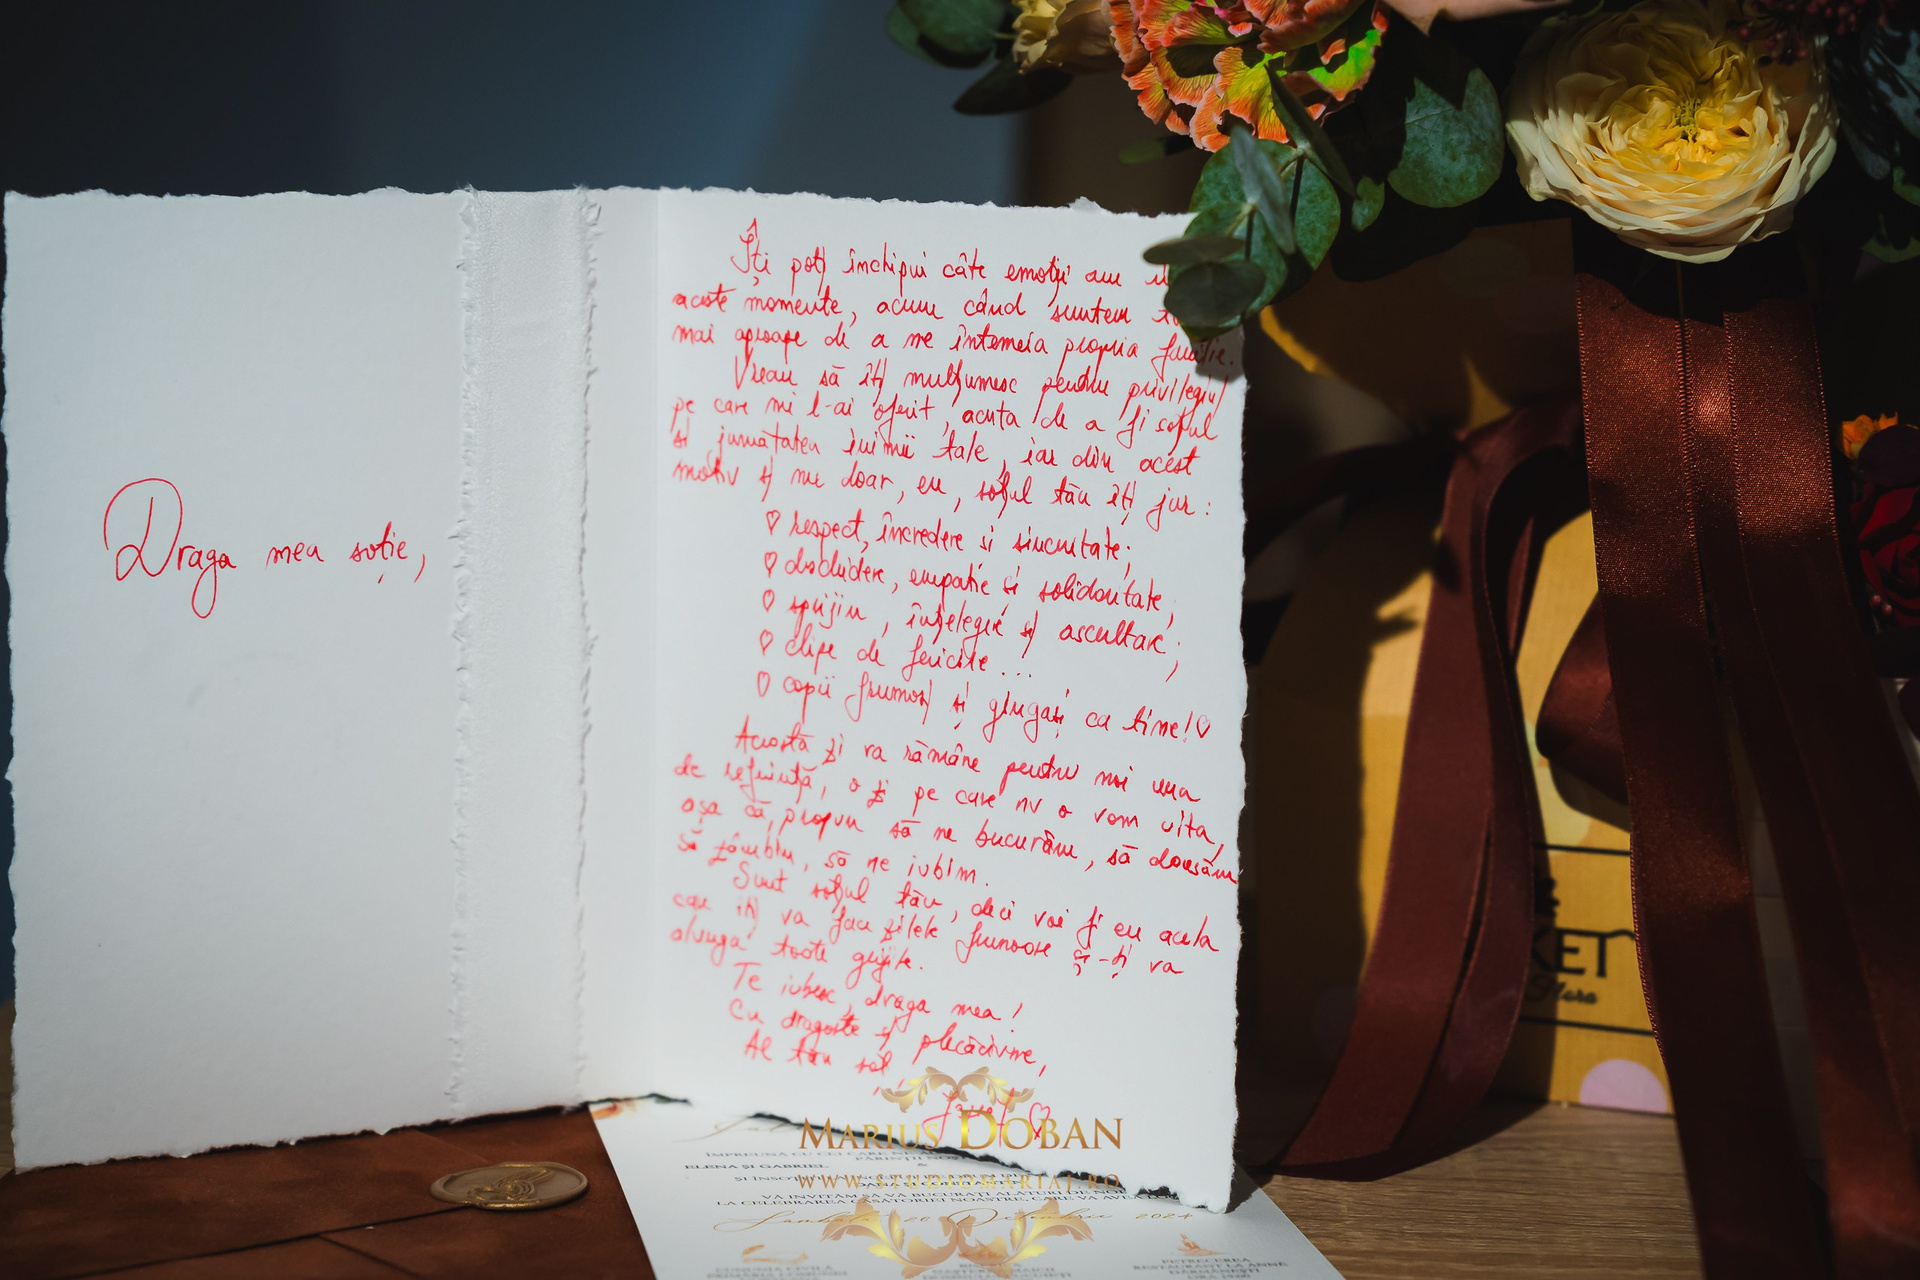 Draga mea soție,
Îți poți închipui câte emoții am
aceste momente, acum când suntem
mai aproape de a ne întemeia propria familie.
Vreau să îți mulțumesc pentru privilegiul
pe care mi l-ai oferit, acela de a fi soțul
și jumătatea inimii tale, iar din acest
motiv și nu doar, eu, soțul tău îți jur:
♡ respect, încredere și sinceritate;
♡ deschidere, empatie și solidaritate;
♡ sprijin, înțelegere și ascultare;
♡ clipe de fericire...
♡ copii frumoși și gingași ca tine!♡
Această zi va rămâne pentru noi una
de referință, o zi pe care nu o vom uita,
așa că, propun să ne bucurăm, să dansăm
să zâmbim, să ne iubim.
Sunt soțul tău, deci voi fi eu acela
care îți va face zilele frumoase și-ți va
alunga toate grijile.
Te iubesc, draga mea!
Cu dragoste și plecăciune,
Al tău soț,
MARIUS DOBAN
ÎMPREUNĂ CU CEI CARE NE
PĂRINȚII
ELENA ȘI GABRIEL &
WWW.STUDIOMARIAJ.RO
VĂ INVITĂM SĂ VĂ BUCURAȚI ALĂTURI DE NOI
LA CELEBRAREA CĂSĂTORIEI NOASTRE, CARE VA AVEA
2024
PETRECEREA
RESTAURANT LA ANNE
&
KET
Flora